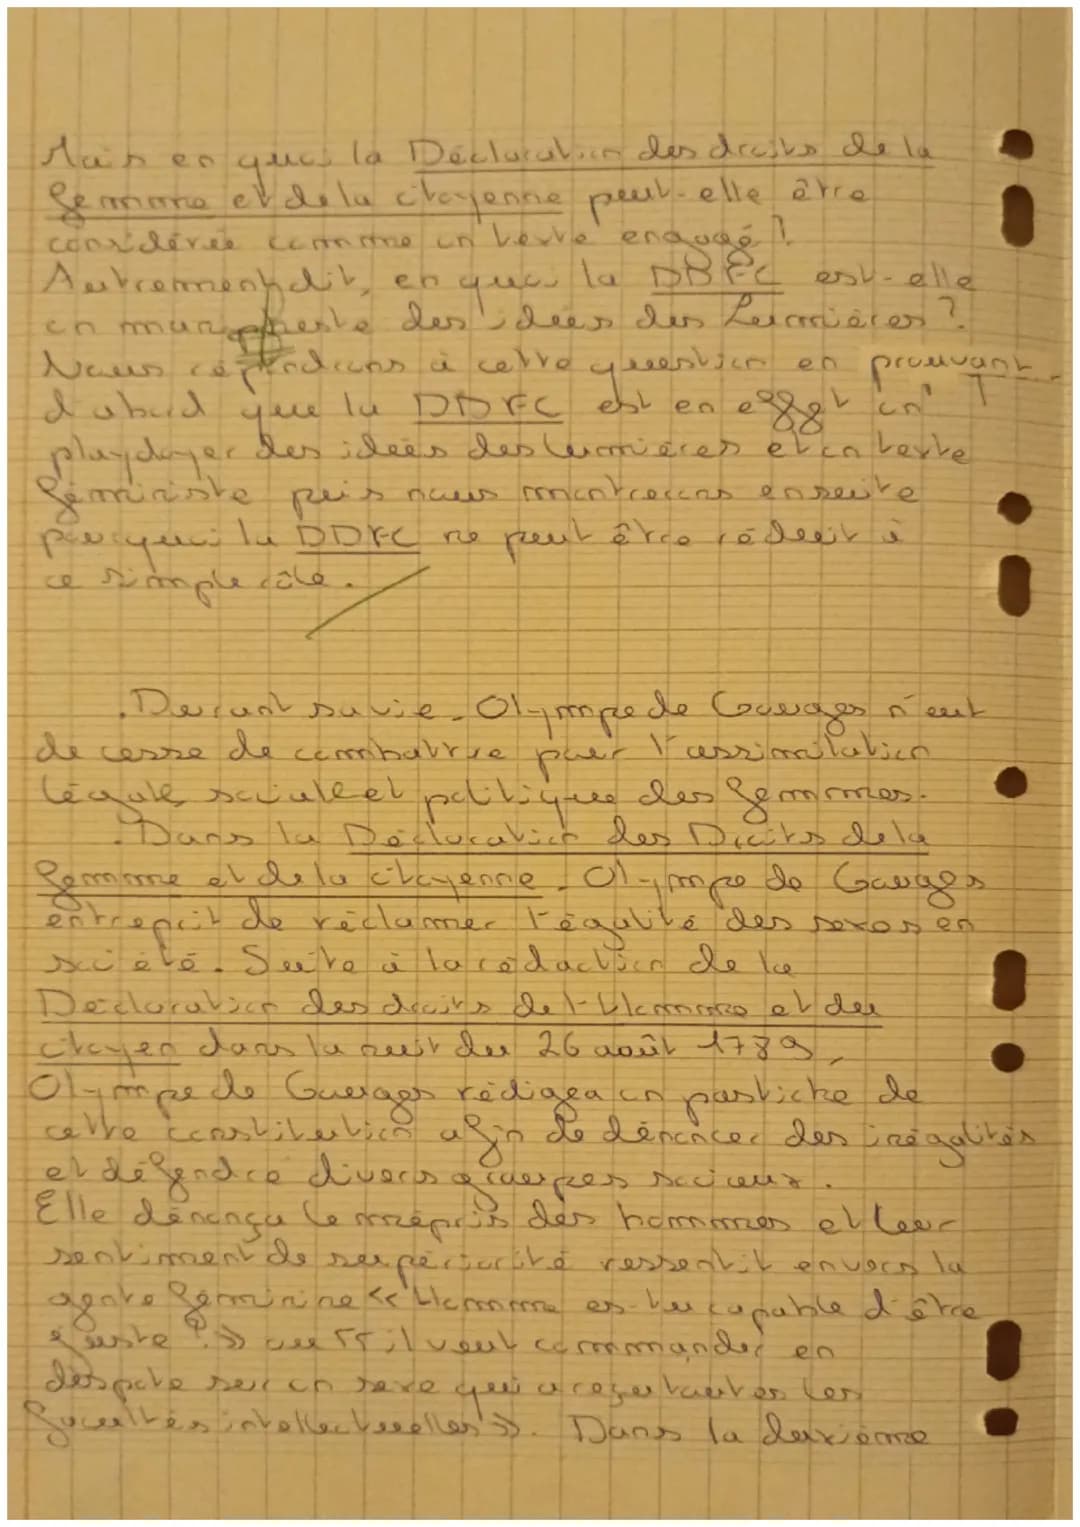 Mais en quoi la Déclaration des droits de la
femme et de la citoyenne peut-elle être
considérée comme un texte engagé ?
Autrement dit, en quoi la DDFC est-elle
un manifeste des idées des Lumières ?
Nous répondrons à cette question en prouvant
d'abord que la DDFC est en effet un
playdoyer des idées des lumières et un texte
féministe puis nous montrerons ensuite
pourquoi la DDFC ne peut être réduit à
ce simple rôle.
. Durant sa vie, Olympe de Gouges n'eut
de cesse de combattre pour l'assimilation
légale, sociale et politique des femmes.
. Dans la Déclaration des Droits de la
femme et de la citoyenne, Olympe de Gouges
entreprit de réclamer l'égalité des sexes en
société. Suite à la rédaction de la
Déclaration des droits de l'Homme et du
citoyen dans la nuit du 26 août 1789,
Olympe de Gouges rédigea un pastiche de
cette constitution afin de dénoncer des inégalités
et défendre divers groupes sociaux.
Elle dénonça le mépris des hommes et leur
sentiment de supériorité ressentit envers la
gente féminine << Homme es-tu capable d'être
juste ? >> ou << il veut commander en
despote sur un sexe qui a reçu toutes les
facultés intellectuelles >>. Dans la deuxième